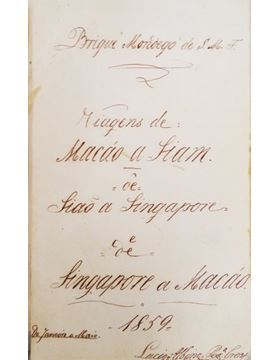 Brigue Mondego de S. M. F.
Viagens de:
Macáo a Siam.
e de
Siaõ a Singapore.
e de
Singapore a Macáo.
1859.
De Janeiro a Maio.